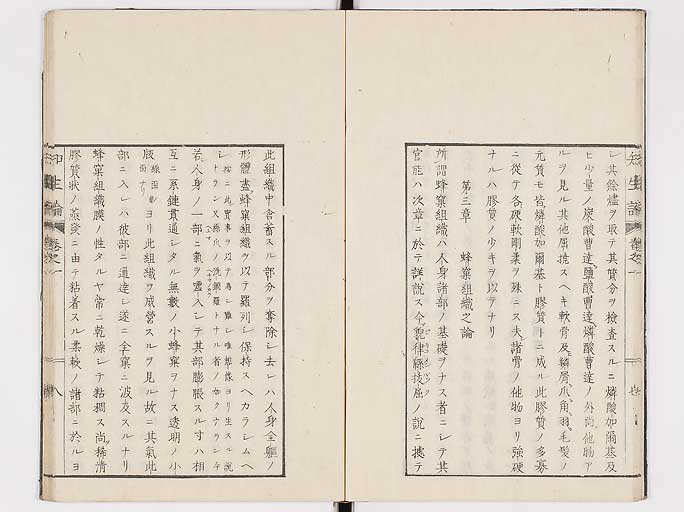 シ其餘燼ヲ取テ其質分ヲ檢査スルニ燐酸加爾基及
ヒ少量ノ炭酸曹達鹽酸曹達燐酸曹達ノ外尚他物ア
ルヲ見ル其他屈撓スヘキ軟骨及鱗屑爪角羽毛髮ノ
元質モ皆燐酸加爾基ト膠質トニ成ル此膠質ノ多寡
ニ從テ各硬軟剛柔ヲ殊ニス夫諸骨ノ他物ヨリ强硬
ナルハ膠質ノ少キヲ以テナリ
第三章 蜂窠組織之論
所謂蜂窠組織ハ人身諸部ノ基礎ヲナス者ニシテ其
官能ハ次章ニ於テ詳說ス今 ノ說ニ據テ
此組織中含蓄スル部分ヲ奪除シ去レハ人身全軀ノ
形體盡蜂窠組織ヲ以テ羅列シ保持スヘカラシムヘ
若人身ノ一部ニ氣ヲ噓入シテ其部膨脹スル寸ハ相
互ニ系鏈貫通シタル無數ノ小蜂窠ヲナス透明ノ小
版 ヨリ此組織ヲ成營スルヲ見ル故ニ其氣此
部ニ入レハ彼部ニ通達シ遂ニ全窠ニ波及スルナリ
蜂窠組織膜ノ性タルヤ常ニ乾燥シテ粘稠ス尚稀淸
膠質狀ノ蒸發ニ由テ粘着スル柔軟ノ諸部ニ於ルヨ